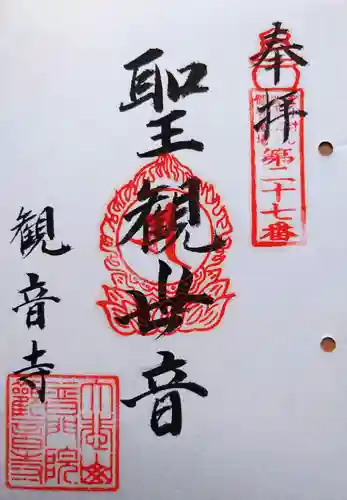 奉拝
第二十七番
聖観世音
観音寺